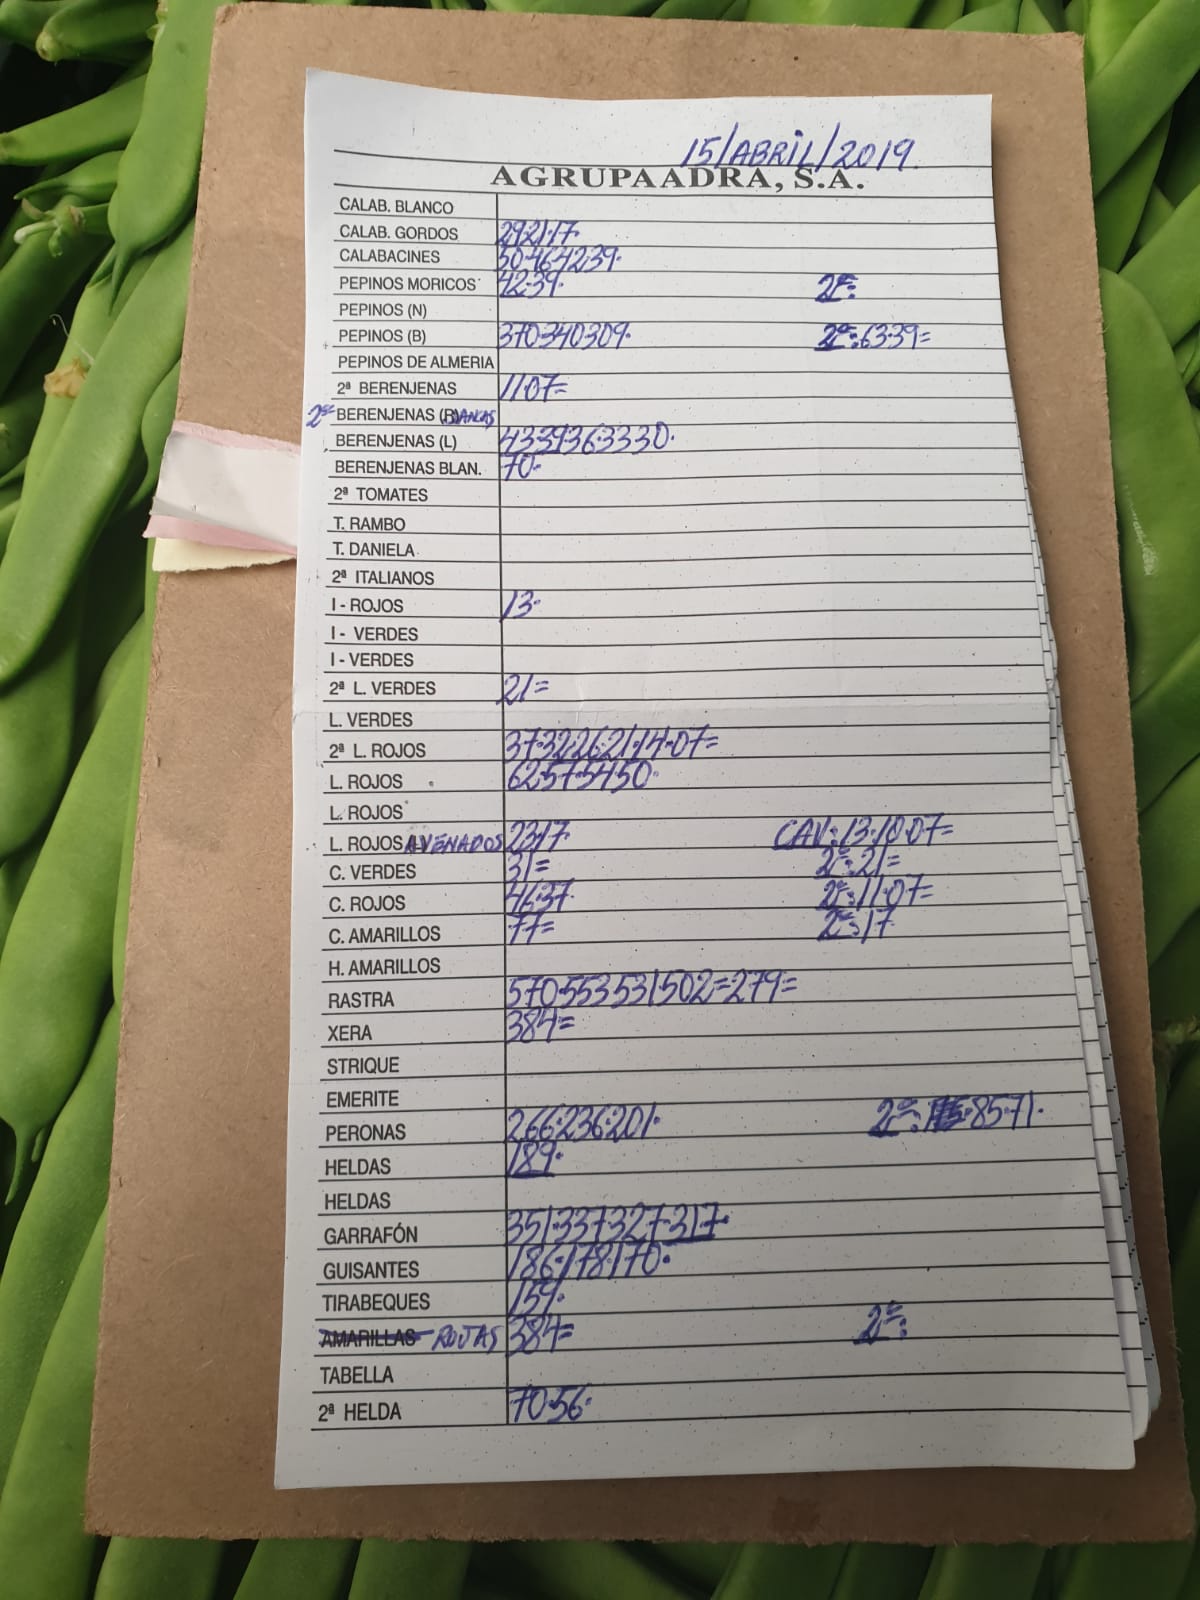 15/ABRIL/2019.
AGRUPAADRA, S.A.
CALAB. BLANCO
CALAB. GORDOS 29·21·17·
CALABACINES 50·46·42·39·
PEPINOS MORICOS 42·39· 2ª:
PEPINOS (N)
PEPINOS (B) 370·340·309· 2ª:63·39=
PEPINOS DE ALMERIA
2ª BERENJENAS 11·07=
2ª BERENJENAS BLANCAS
BERENJENAS (L) 43·39·36·33·30·
BERENJENAS BLAN. 70·
2ª TOMATES
T. RAMBO
T. DANIELA
2ª ITALIANOS
I - ROJOS 13·
I - VERDES
I - VERDES
2ª L. VERDES 21=
L. VERDES
2ª L. ROJOS 37·32·26·21·14·07=
L. ROJOS 62·57·54·50·
L. ROJOS
L. ROJOS AVENADOS 23·17· CAV:13·10·07=
C. VERDES 31= 2ª:21=
C. ROJOS 46·37· 2ª:11·07=
C. AMARILLOS 77= 2ª:17
H. AMARILLOS
RASTRA 570·553·531·502=279=
XERA 384=
STRIQUE
EMERITE
PERONAS 266·236·201· 2ª: 85·71·
HELDAS 189·
HELDAS
GARRAFÓN 351·337·327·317·
GUISANTES 186·178·170·
TIRABEQUES 159·
AMARILLAS ROJAS 384= 2ª:
TABELLA
2ª HELDA 70·56·